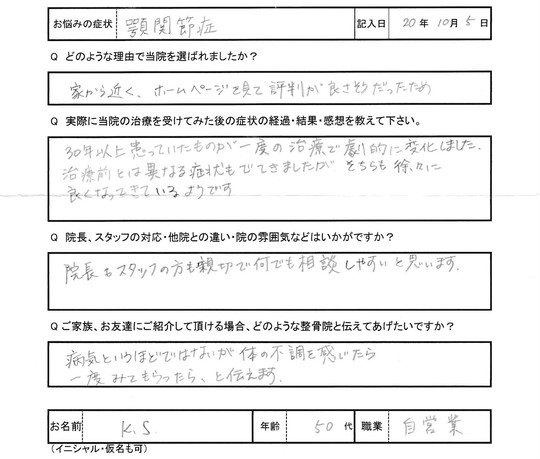 お悩みの症状 顎関節症 記入日 20年10月5日
Q どのような理由で当院を選ばれましたか？
家から近く、ホームページを見て評判が良さそうだったため
Q 実際に当院の治療を受けてみた後の症状の経過・結果・感想を教えて下さい。
30年以上患っていたものが一度の治療で劇的に変化しました.
治療前とは異なる症状もでてきましたが そちらも徐々に
良くなってきているようです
Q 院長、スタッフの対応・他院との違い・院の雰囲気などはいかがですか？
院長もスタッフの方も親切で何でも相談しやすいと思います.
Q ご家族、お友達にご紹介して頂ける場合、どのような整骨院と伝えてあげたいですか？
病気というほどではないが体の不調を感じたら
一度みてもらったら、と伝えます.
お名前 K.S. 年齢 50代 職業 自営業
（イニシャル・仮名も可）